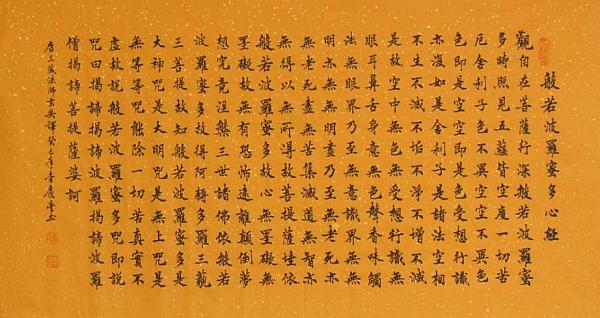 般若波羅蜜多心經
觀自在菩薩行深般若波羅蜜
多時照見五蘊皆空度一切苦
厄舍利子色不異空空不異色
色即是空空即是色受想行識
亦復如是舍利子是諸法空相
不生不滅不垢不淨不增不減
是故空中無色無受想行識無
眼耳鼻舌身意無色聲香味觸
法無眼界乃至無意識界無無
明亦無無明盡乃至無老死亦
無老死盡無苦集滅道無智亦
無得以無所得故菩提薩埵依
般若波羅蜜多故心無罣礙無
罣礙故無有恐怖遠離顛倒夢
想究竟涅槃三世諸佛依般若
波羅蜜多故得阿耨多羅三藐
三菩提故知般若波羅蜜多是
大神咒是大明咒是無上咒是
無等等咒能除一切苦真實不
虛故說般若波羅蜜多咒即說
咒曰揭諦揭諦波羅揭諦波羅
僧揭諦菩提薩婆訶
唐三藏法師玄奘譯癸巳年春